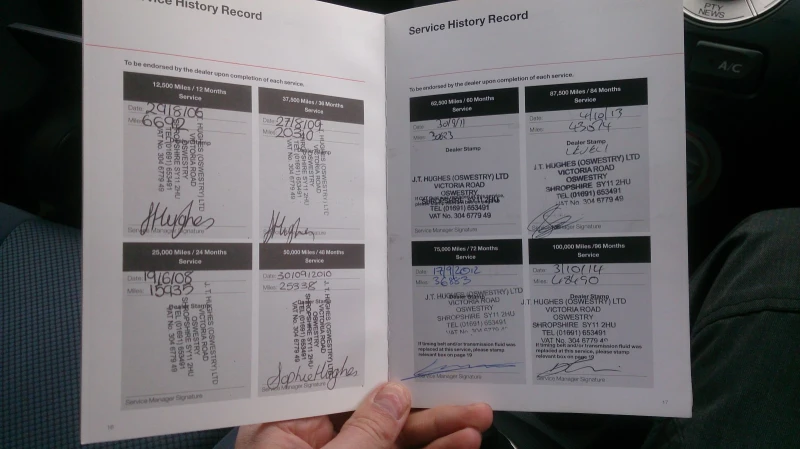 Service History Record
To be endorsed by the dealer upon completion of each service.
12,500 Miles / 12 Months
Service
Date: 29/8/06
Miles: 6690
J.T. HUGHES (OSWESTRY) LTD
VICTORIA ROAD
OSWESTRY
SHROPSHIRE SY11 2HU
TEL (01691) 653491
VAT No. 304 6779 49
JHughes
Service Manager Signature
37,500 Miles / 36 Months
Service
Date: 27/8/09
Miles: 20510
Dealer Stamp
J.T. HUGHES (OSWESTRY) LTD
VICTORIA ROAD
OSWESTRY
SHROPSHIRE SY11 2HU
TEL (01691) 653491
VAT No. 304 6779 49
JHughes
Service Manager Signature
25,000 Miles / 24 Months
Service
Date: 19/6/08
Miles: 15935
J.T. HUGHES (OSWESTRY) LTD
VICTORIA ROAD
OSWESTRY
SHROPSHIRE SY11 2HU
TEL (01691) 653491
VAT No. 304 6779 49
Service Manager Signature
50,000 Miles / 48 Months
Service
Date: 30/09/2010
Miles: 25338
J.T. HUGHES (OSWESTRY) LTD
VICTORIA ROAD
OSWESTRY
SHROPSHIRE SY11 2HU
TEL (01691) 653491
VAT No. 304 6779 49
Sophie Hughes
Service Manager Signature
16
Service History Record
To be endorsed by the dealer upon completion of each service.
62,500 Miles / 60 Months
Service
Date: 30/9/11
Miles:
Dealer Stamp
J.T. HUGHES (OSWESTRY) LTD
VICTORIA ROAD
OSWESTRY
SHROPSHIRE SY11 2HU
TEL (01691) 653491
VAT No. 304 6779 49
Service Manager Signature
87,500 Miles / 84 Months
Service
Date: 4/10/13
Miles:
Dealer Stamp
LEVEL 1
J.T. HUGHES (OSWESTRY) LTD
VICTORIA ROAD
OSWESTRY
SHROPSHIRE SY11 2HU
TEL (01691) 653491
VAT No. 304 6779 49
Service Manager Signature
75,000 Miles / 72 Months
Service
Date: 17/9/2012
Miles: 36883
Dealer Stamp
J.T. HUGHES (OSWESTRY) LTD
VICTORIA ROAD
OSWESTRY
SHROPSHIRE SY11 2HU
TEL (01691) 653491
VAT No. 304 6779
If timing belt and/or transmission fluid was
replaced at this service, please stamp
relevant box on page 19
Service Manager Signature
100,000 Miles / 96 Months
Service
Date: 3/10/14
Miles: 48490
Dealer Stamp
J.T. HUGHES (OSWESTRY) LTD
VICTORIA ROAD
OSWESTRY
SHROPSHIRE SY11 2HU
TEL (01691) 653491
VAT No. 304 6779 49
If timing belt and/or transmission fluid was
replaced at this service, please stamp
relevant box on page 19
Service Manager Signature
17
PTY
NEWS
A/C